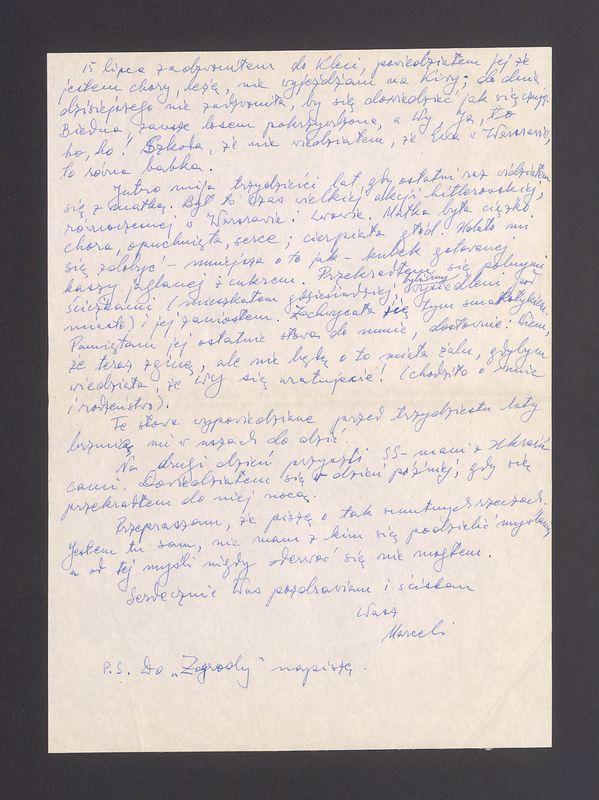 15 lipca zadzwoniłem do Kleci, powiedziałem jej że
jestem chory, leżę, nie wyjeżdżam na Kiry; do dnia
dzisiejszego nie zadzwoniła, by się dowiedzieć jak się czuję.
Biedna, zawsze losem pokrzywdzona, a Wy, ja, to
ho, ho! Szkoda, że nie wiedziałem, że Ewa w Warszawie,
to równa babka.
Jutro mija trzydzieści lat gdy ostatni raz widziałem
się z matką. Był to czas wielkiej akcji hitlerowskiej,
równoczesnej w Warszawie i Lwowie. Matka była ciężko
chora, opuchnięta, serce; cierpiała głód. Udało mi
się zdobyć – mniejsza o to jak – kubek gotowanej
kaszy jaglanej z cukrem. Przekradłem się polnymi
ścieżkami (mieszkałem gdzieindziej, byliśmy wysiedleni
miasto) i jej zaniosłem. Zachwycała się tym
Pamiętam jej ostatnie słowa do mnie, dosłownie: Wiem,
że teraz zginę, ale nie będę o to miała żalu, gdybym
wiedziała, że Wy się uratujecie! (chodziło o mnie
i rodzeństwo).
Te słowa wypowiedziane przed trzydziestu laty
brzmią mi w uszach do dziś.
Na drugi dzień przyszli SS-mani z Ukraiń-
cami. Dowiedziałem się w dzień później, gdy się
przekradłem do niej nocą.
Przepraszam, że piszę o tak smutnych rzeczach.
Jestem tu sam, nie mam z kim się podzielić myślami
a od tej myśli nigdy oderwać się nie mogłem.
Serdecznie Was pozdrawiam i ściskam
Wasz
Marceli
P.S. Do „Zagrody" napiszę.